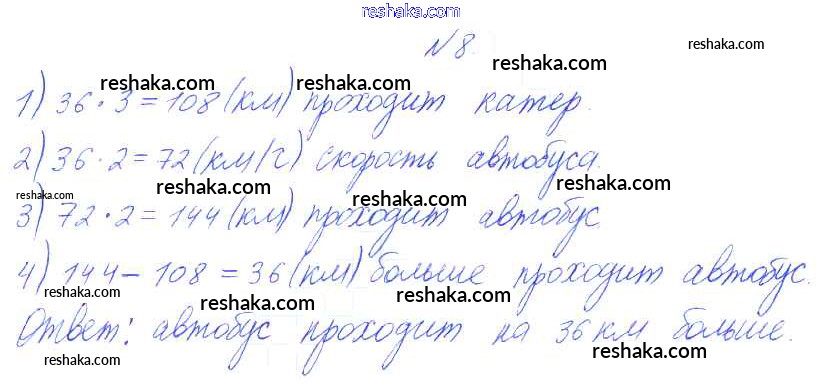 reshaka.com
№8.
reshaka.com
reshaka.com
reshaka.com
reshaka.com
1) 36 · 3 = 108 (км) проходит катер.
reshaka.com
2) 36 · 2 = 72 (км/ч) скорость автобуса.
reshaka.com
reshaka.com
reshaka.com
3) 72 · 2 = 144 (км) проходит автобус
reshaka.com
4) 144 - 108 = 36 (км) больше проходит автобус.
reshaka.com
reshaka.com
reshaka.com
Ответ: автобус проходит на 36 км больше.
reshaka.com
reshaka.com